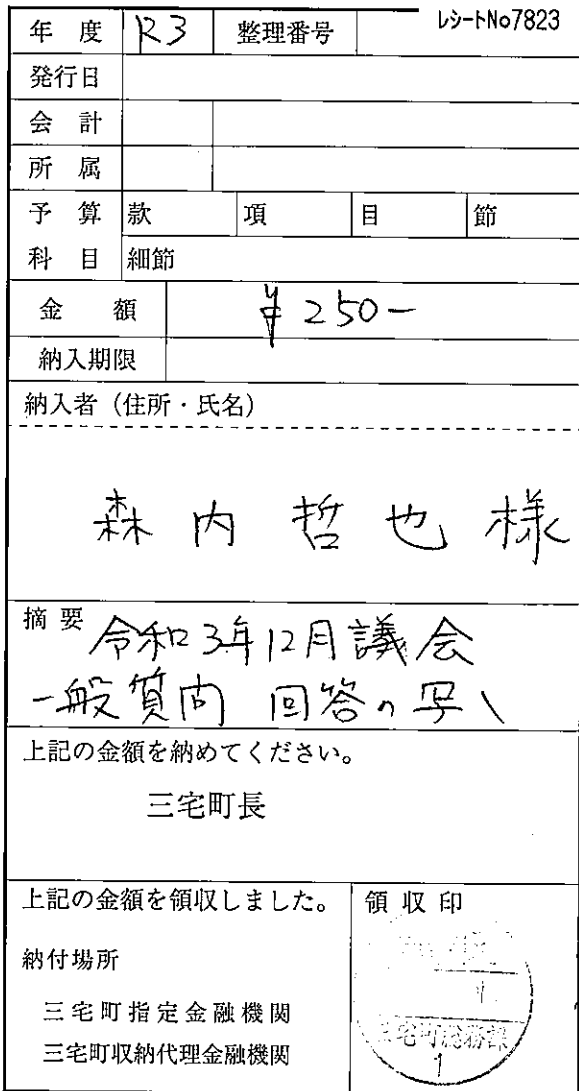 レシートNo7823
年度 R3 整理番号
発行日
会計
所属
予算 款 項 目 節
科目 細節
金額 ¥250-
納入期限
納入者（住所・氏名）
森内哲也様
摘要 令和3年12月議会
一般質問 回答の写し
上記の金額を納めてください。
三宅町長
上記の金額を領収しました。 領収印
納付場所
三宅町指定金融機関
三宅町収納代理金融機関
三宅町総務課
1